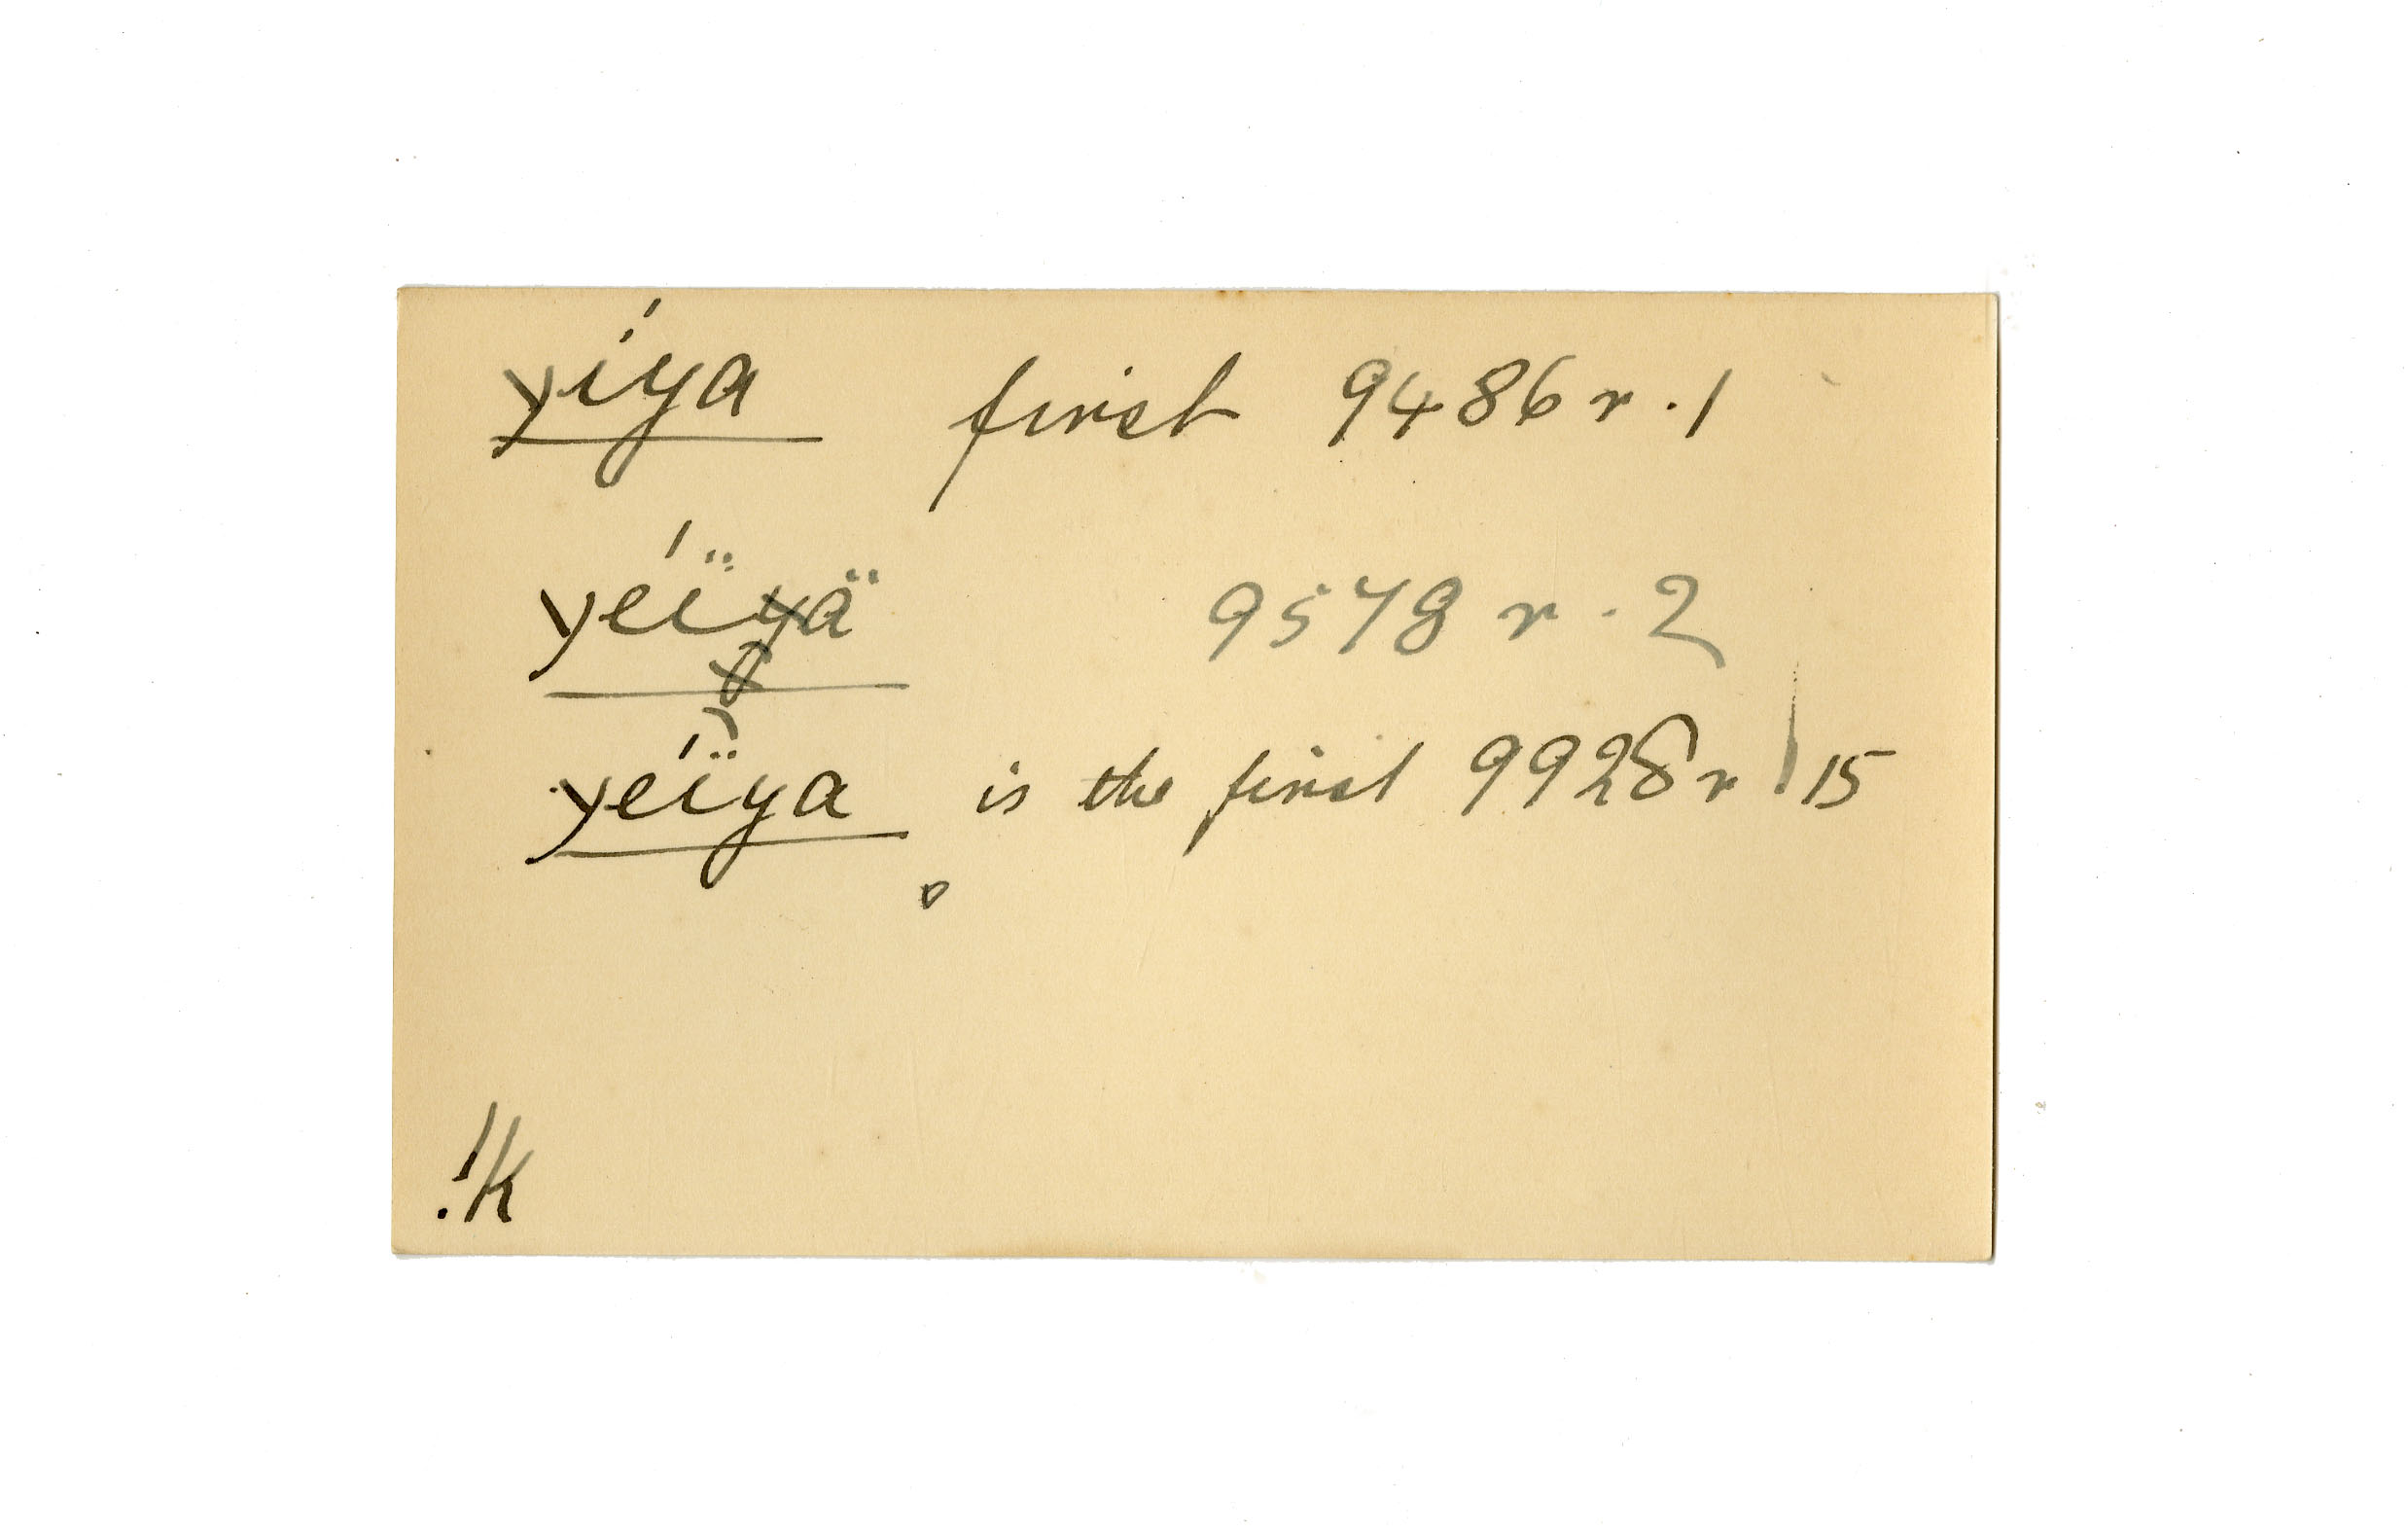 yíya first 9486 r. 1
yéïyä 9578 r. 2
yéïya is the first 9928 r 15
!k